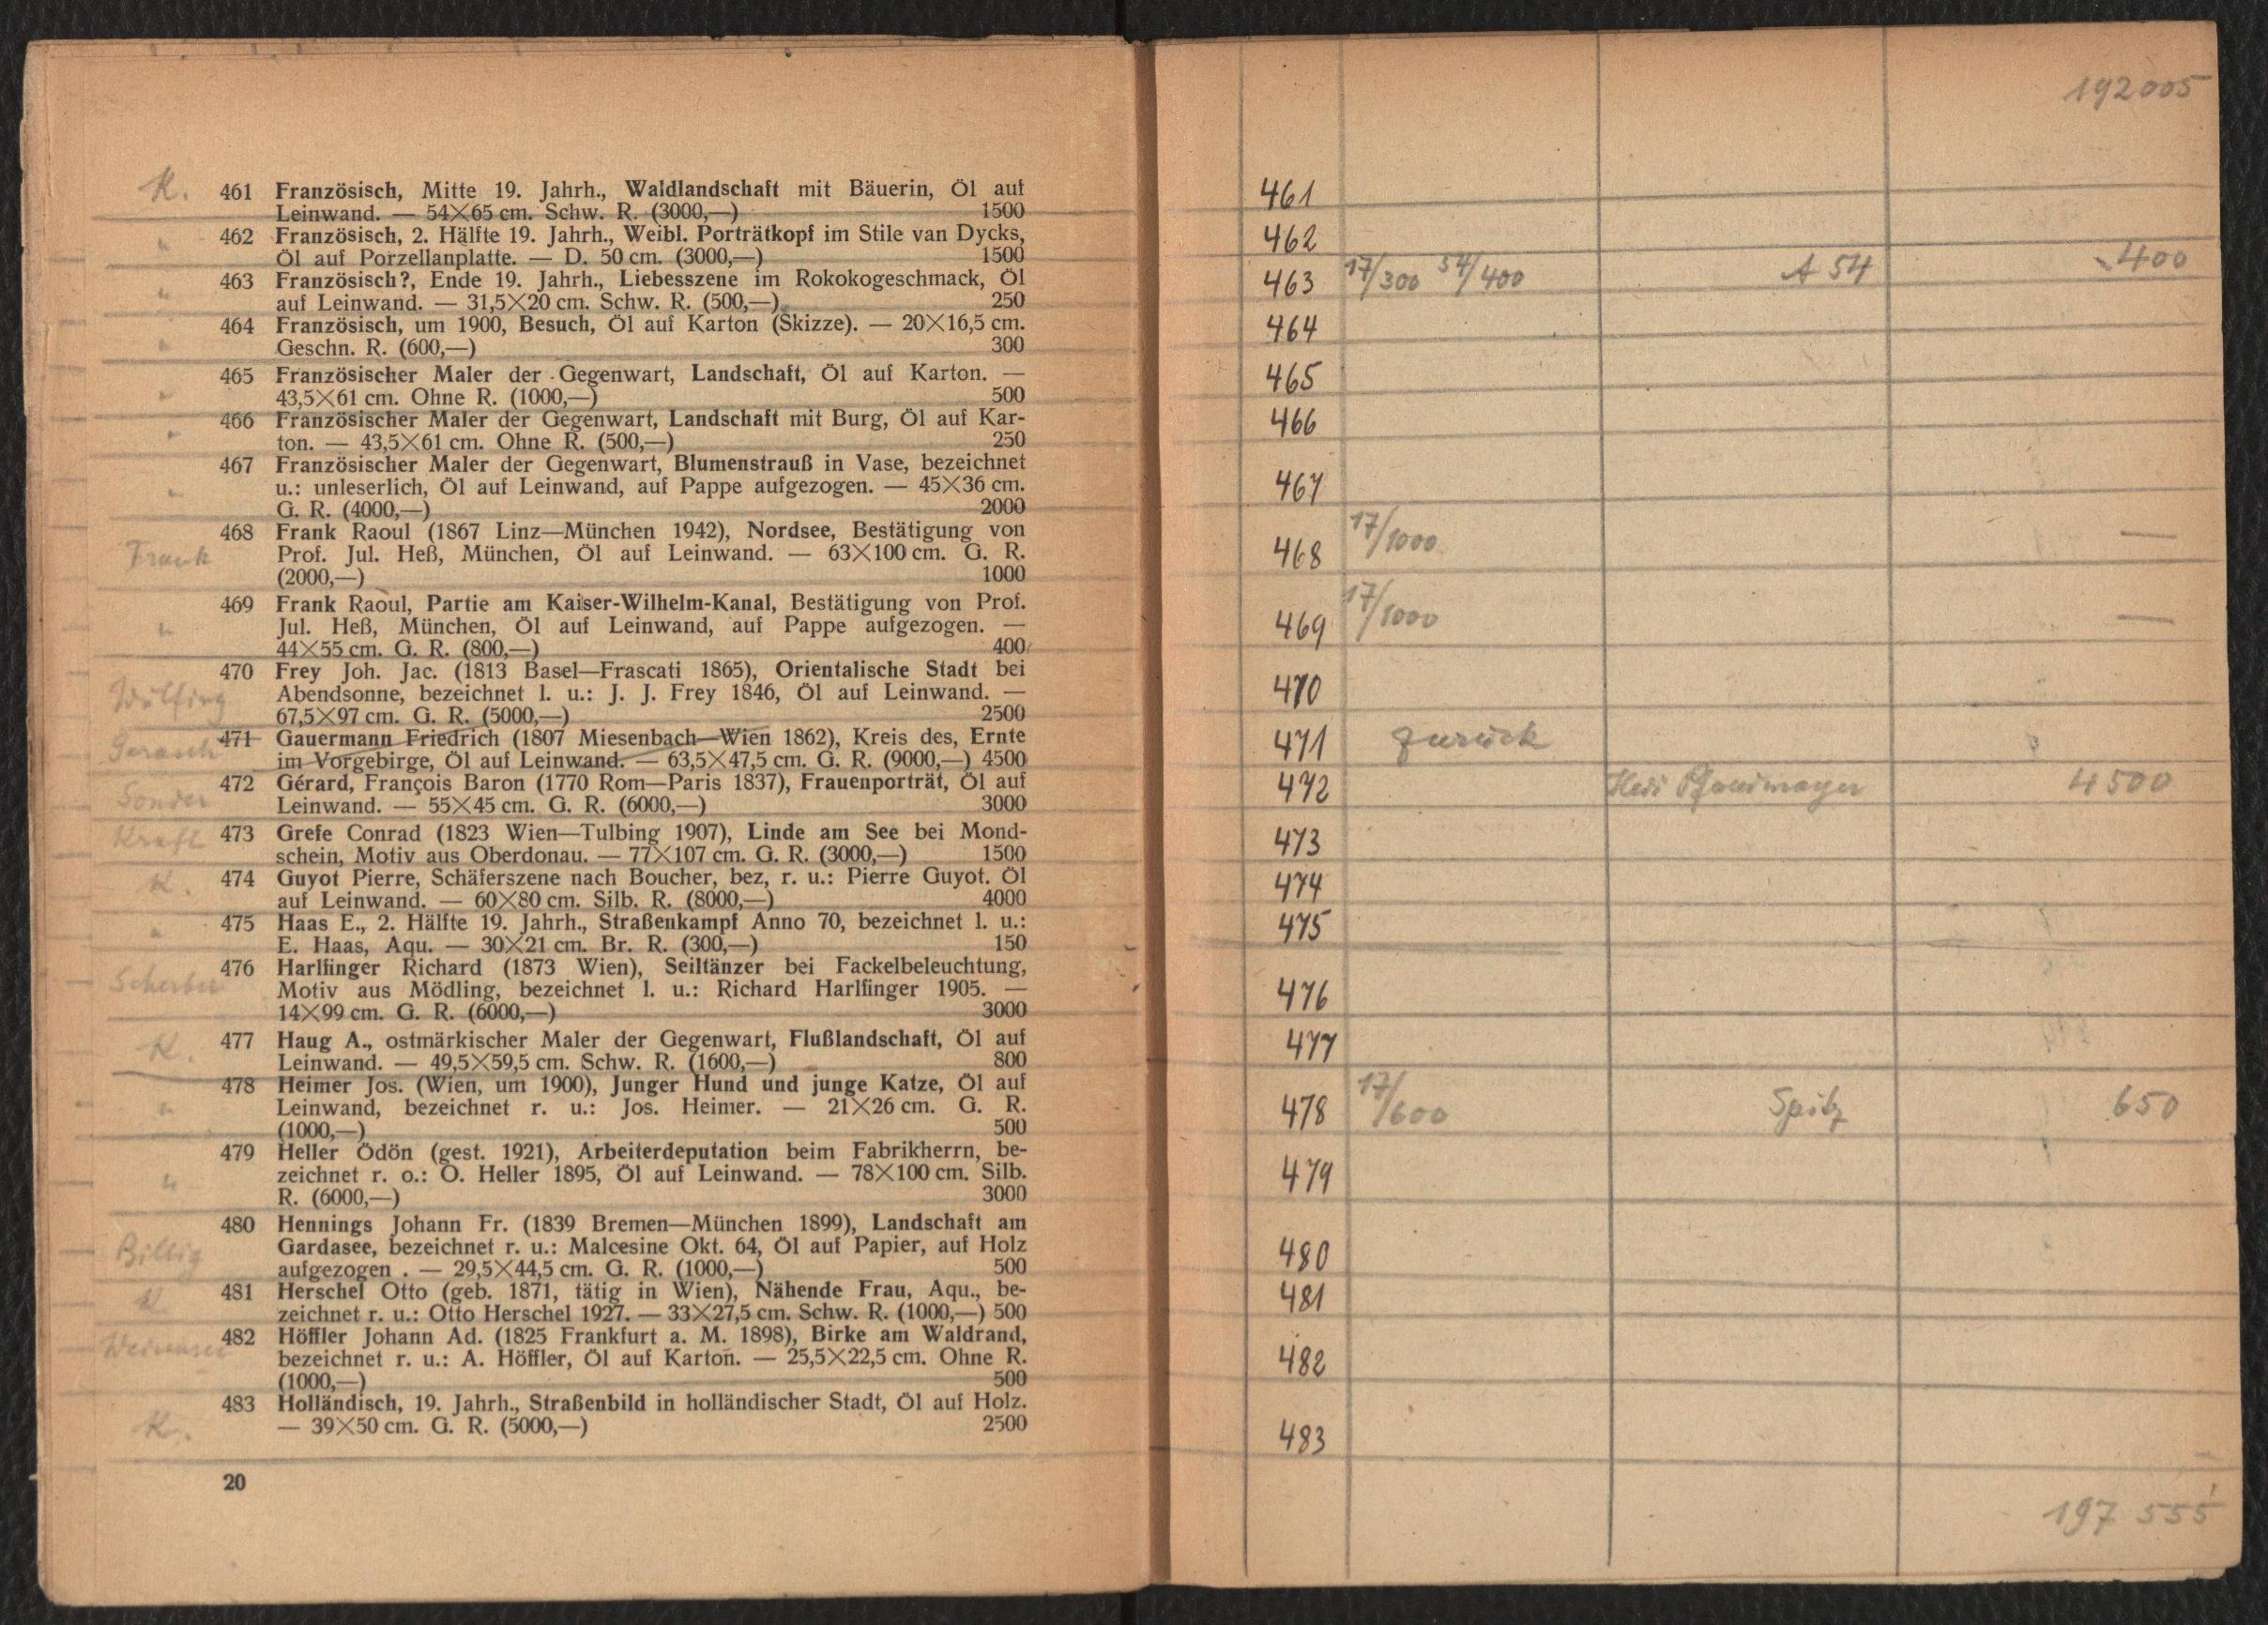 K. 461 Französisch, Mitte 19. Jahrh., Waldlandschaft mit Bäuerin, Öl auf
Leinwand. — 54×65 cm. Schw. R. (3000,—) 1500
" 462 Französisch, 2. Hälfte 19. Jahrh., Weibl. Porträtkopf im Stile van Dycks,
Öl auf Porzellanplatte. — D. 50 cm. (3000,—) 1500
" 463 Französisch?, Ende 19. Jahrh., Liebesszene im Rokokogeschmack, Öl
auf Leinwand. — 31,5×20 cm. Schw. R. (500,—) 250
" 464 Französisch, um 1900, Besuch, Öl auf Karton (Skizze). — 20×16,5 cm.
Geschn. R. (600,—) 300
" 465 Französischer Maler der Gegenwart, Landschaft, Öl auf Karton. —
43,5×61 cm. Ohne R. (1000,—) 500
" 466 Französischer Maler der Gegenwart, Landschaft mit Burg, Öl auf Kar-
ton. — 43,5×61 cm. Ohne R. (500,—) 250
" 467 Französischer Maler der Gegenwart, Blumenstrauß in Vase, bezeichnet
u.: unleserlich, Öl auf Leinwand, auf Pappe aufgezogen. — 45×36 cm.
G. R. (4000,—) 2000
Frank 468 Frank Raoul (1867 Linz—München 1942), Nordsee, Bestätigung von
Prof. Jul. Heß, München, Öl auf Leinwand. — 63×100 cm. G. R.
(2000,—) 1000
" 469 Frank Raoul, Partie am Kaiser-Wilhelm-Kanal, Bestätigung von Prof.
Jul. Heß, München, Öl auf Leinwand, auf Pappe aufgezogen. —
44×55 cm. G. R. (800,—) 400
Wülfing 470 Frey Joh. Jac. (1813 Basel—Frascati 1865), Orientalische Stadt bei
Abendsonne, bezeichnet l. u.: J. J. Frey 1846, Öl auf Leinwand. —
67,5×97 cm. G. R. (5000,—) 2500
Gerasch 471 Gauermann Friedrich (1807 Miesenbach—Wien 1862), Kreis des, Ernte
im Vorgebirge, Öl auf Leinwand. — 63,5×47,5 cm. G. R. (9000,—) 4500
Sonder 472 Gérard, François Baron (1770 Rom—Paris 1837), Frauenporträt, Öl auf
Leinwand. — 55×45 cm. G. R. (6000,—) 3000
Kraft 473 Grefe Conrad (1823 Wien—Tulbing 1907), Linde am See bei Mond-
schein, Motiv aus Oberdonau. — 77×107 cm. G. R. (3000,—) 1500
K. 474 Guyot Pierre, Schäferszene nach Boucher, bez, r. u.: Pierre Guyot. Öl
auf Leinwand. — 60×80 cm. Silb. R. (8000,—) 4000
" 475 Haas E., 2. Hälfte 19. Jahrh., Straßenkampf Anno 70, bezeichnet l. u.:
E. Haas, Aqu. — 30×21 cm. Br. R. (300,—) 150
Scherber 476 Harlfinger Richard (1873 Wien), Seiltänzer bei Fackelbeleuchtung,
Motiv aus Mödling, bezeichnet l. u.: Richard Harlfinger 1905. —
14×99 cm. G. R. (6000,—) 3000
K. 477 Haug A., ostmärkischer Maler der Gegenwart, Flußlandschaft, Öl auf
Leinwand. — 49,5×59,5 cm. Schw. R. (1600,—) 800
" 478 Heimer Jos. (Wien, um 1900), Junger Hund und junge Katze, Öl auf
Leinwand, bezeichnet r. u.: Jos. Heimer. — 21×26 cm. G. R.
(1000,—) 500
" 479 Heller Ödön (gest. 1921), Arbeiterdeputation beim Fabrikherrn, be-
zeichnet r. o.: O. Heller 1895, Öl auf Leinwand. — 78×100 cm. Silb.
R. (6000,—) 3000
Billig 480 Hennings Johann Fr. (1839 Bremen—München 1899), Landschaft am
Gardasee, bezeichnet r. u.: Malcesine Okt. 64, Öl auf Papier, auf Holz
aufgezogen . — 29,5×44,5 cm. G. R. (1000,—) 500
K 481 Herschel Otto (geb. 1871, tätig in Wien), Nähende Frau, Aqu., be-
zeichnet r. u.: Otto Herschel 1927. — 33×27,5 cm. Schw. R. (1000,—) 500
482 Höffler Johann Ad. (1825 Frankfurt a. M. 1898), Birke am Waldrand,
bezeichnet r. u.: A. Höffler, Öl auf Karton. — 25,5×22,5 cm. Ohne R.
(1000,—) 500
K. 483 Holländisch, 19. Jahrh., Straßenbild in holländischer Stadt, Öl auf Holz.
— 39×50 cm. G. R. (5000,—) 2500
20
192005
461
462
463 17/300 54/400 A 54 400
464
465
466
467
468 17/1000 —
469 17/1000 —
470
471 zurück
472 4500
473
474
475
476
477
478 17/600 Spitz 650
479
480
481
482
483
197 555